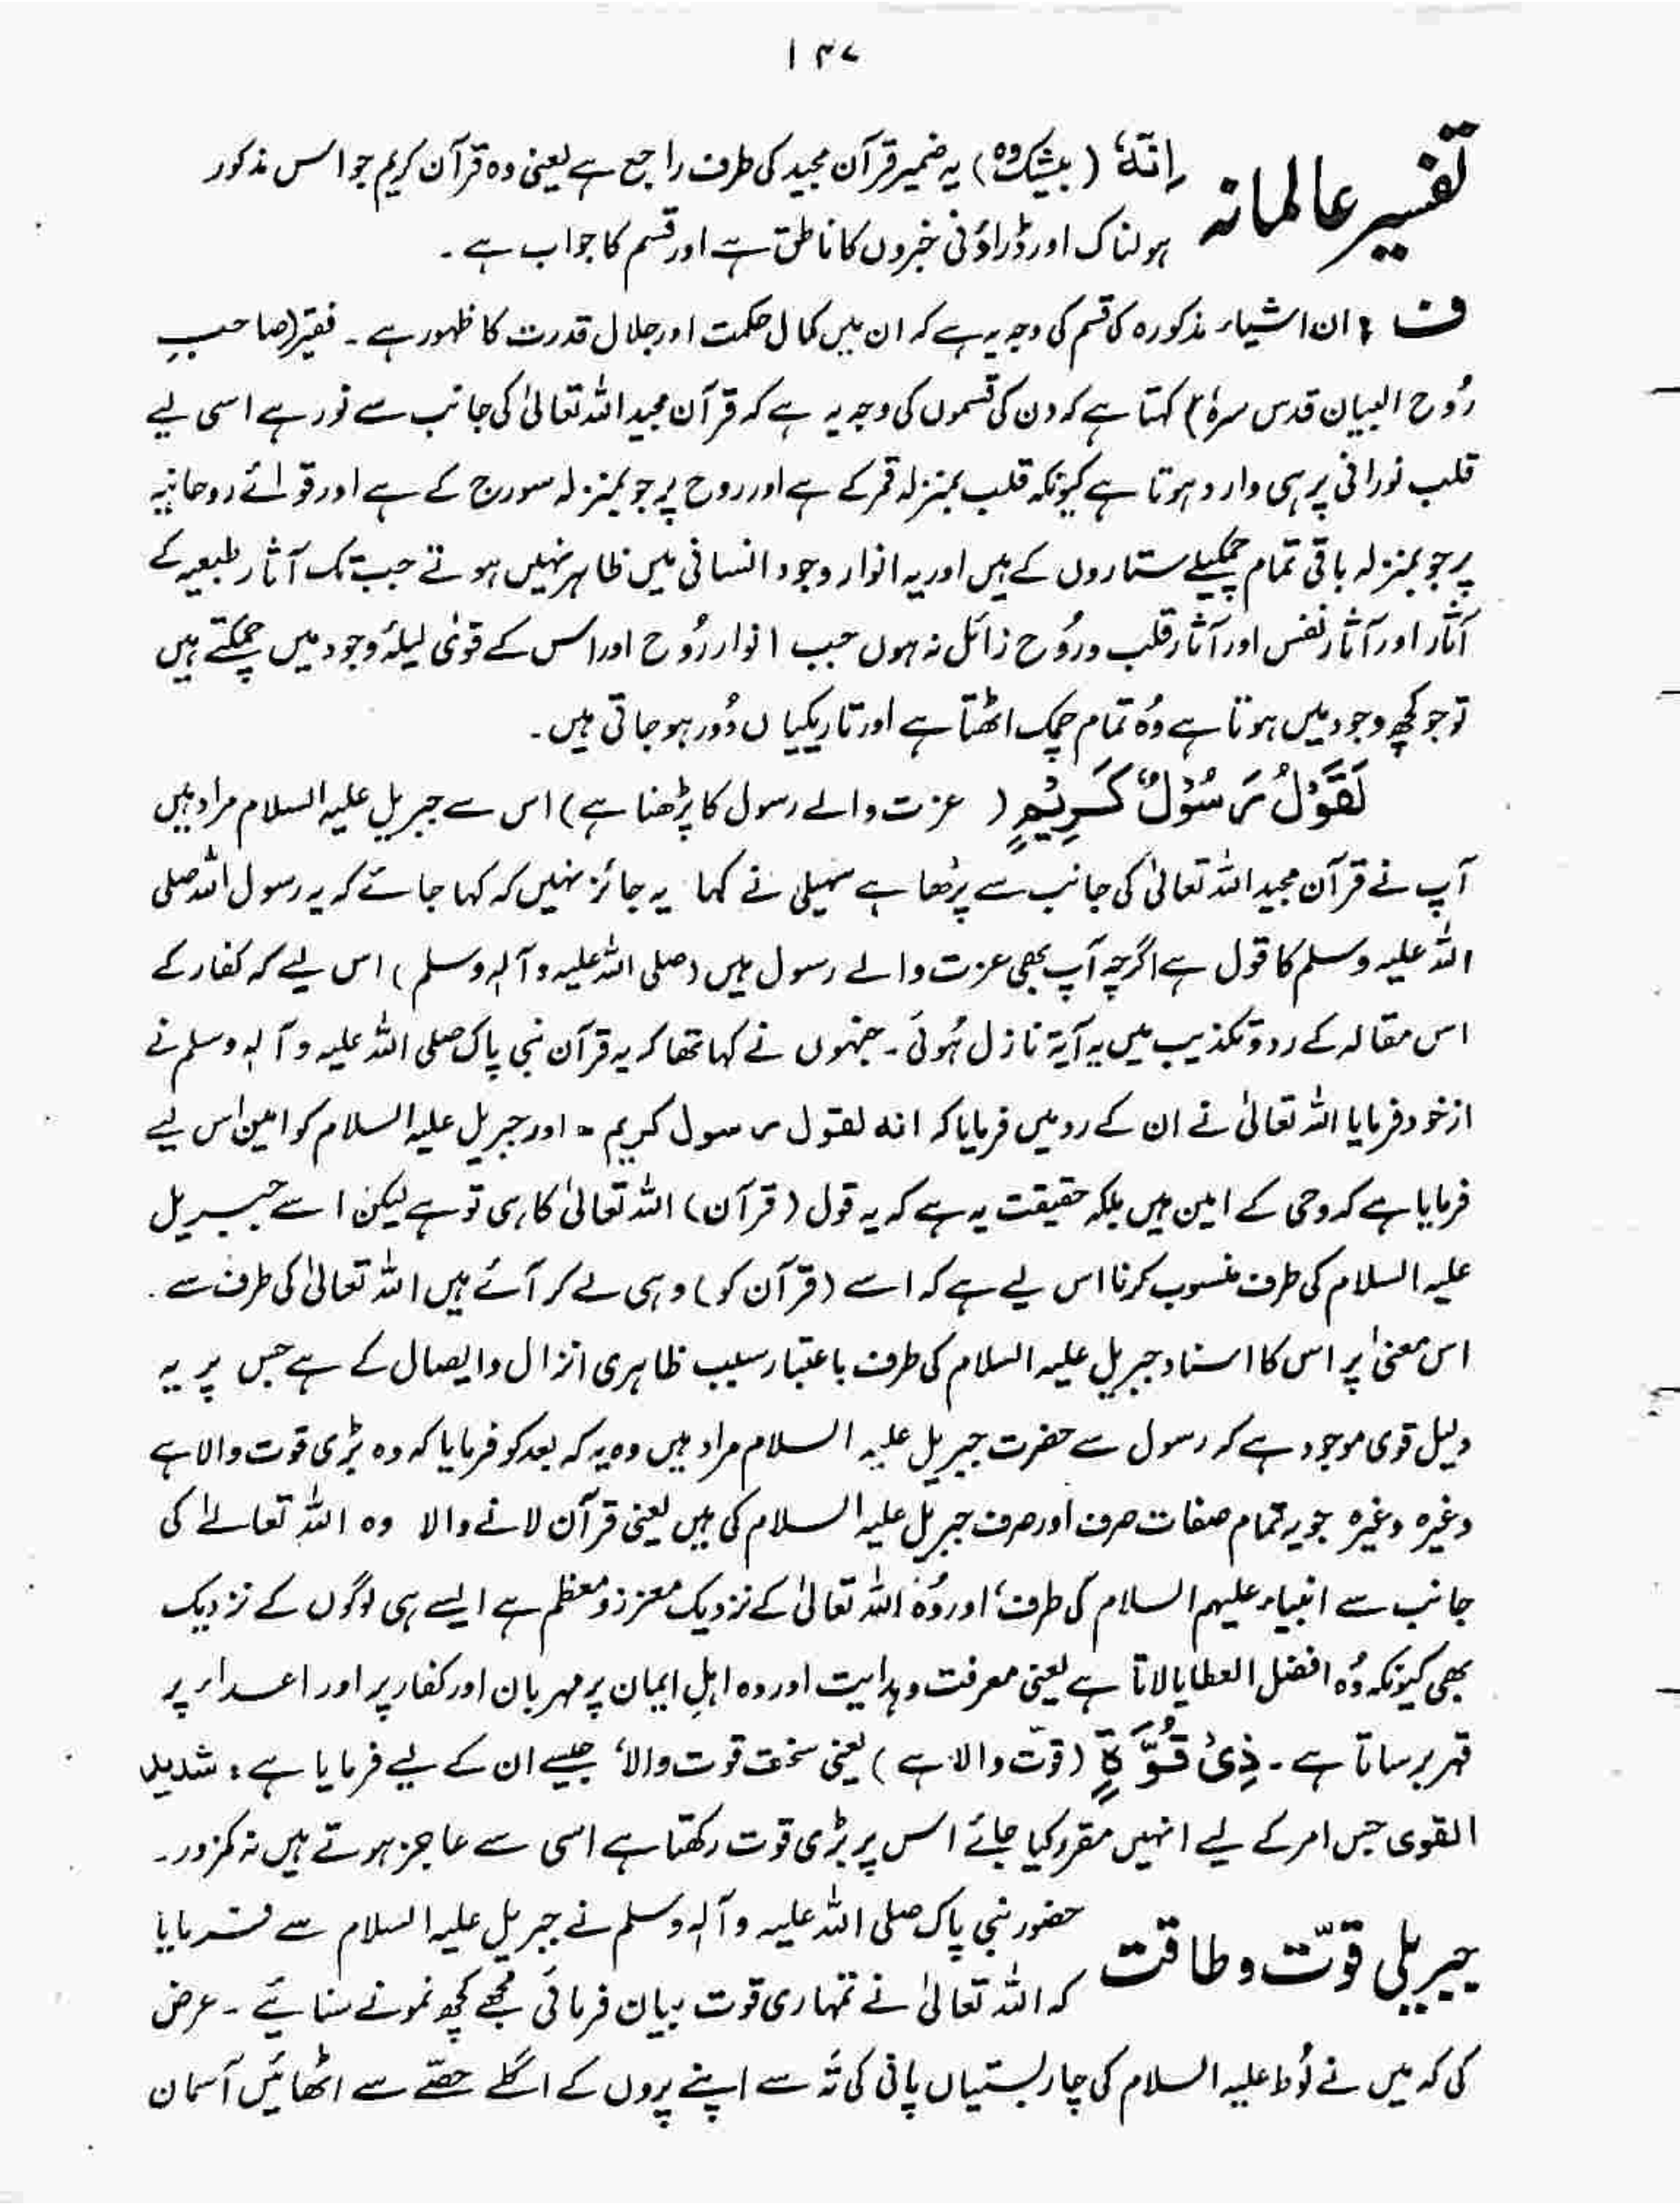 ۱۴۷
تفسیر عالمانہ اِنَّہٗ (بیشک وہ) یہ ضمیر قرآن مجید کی طرف راجع ہے یعنی وہ قرآن کریم جو اس مذکور
ہولناک اور ڈراؤنی خبروں کا ناطق ہے اور قسم کا جواب ہے ۔
ف : ان اشیاء مذکورہ کی قسم کی وجہ یہ ہے کہ ان میں کمال حکمت اور جلال قدرت کا ظہور ہے ۔ فقیر (صاحبِ
رُوح البیان قدس سرہٗ) کہتا ہے کہ دن کی قسموں کی وجہ یہ ہے کہ قرآن مجید اللہ تعالیٰ کی جانب سے نور ہے اسی لیے
قلب نورانی پر ہی وارد ہوتا ہے کیونکہ قلب بمنزلہ قمر کے ہے اور روح پر جو بمنزلہ سورج کے ہے اور قوائے روحانیہ
پر جو بمنزلہ باقی تمام چمکیلے ستاروں کے ہیں اور یہ انوار وجود انسانی میں ظاہر نہیں ہوتے جب تک آثار طبعیہ کے
آثار اور آثار نفس اور آثار قلب و رُوح زائل نہ ہوں جب انوار رُوح اور اس کے قویٰ لیلۂ وجود میں چمکتے ہیں
تو جو کچھ وجود میں ہوتا ہے وُہ تمام چمک اٹھتا ہے اور تاریکیاں دُور ہو جاتی ہیں ۔
لَقَوْلُ رَسُوْلٍ کَرِیْمٍ ( عزت والے رسول کا پڑھنا ہے) اس سے جبریل علیہ السلام مراد ہیں
آپ نے قرآن مجید اللہ تعالیٰ کی جانب سے پڑھا ہے سہیلی نے کہا یہ جائز نہیں کہ کہا جائے کہ یہ رسول اللہ صلی
اللہ علیہ وسلم کا قول ہے اگرچہ آپ بھی عزت والے رسول ہیں (صلی اللہ علیہ وآلہ وسلم) اس لیے کہ کفار کے
اس مقالہ کے رد و تکذیب میں یہ آیۃ نازل ہُوئی ۔ جنہوں نے کہا تھا کہ یہ قرآن نبی پاک صلی اللہ علیہ وآلہ وسلم نے
از خود فرمایا اللہ تعالیٰ نے ان کے رد میں فرمایا کہ انہ لقول رسول کریم ۔ اور جبریل علیہ السلام کو امین اس لیے
فرمایا ہے کہ وحی کے امین ہیں بلکہ حقیقت یہ ہے کہ یہ قول (قرآن) اللہ تعالیٰ کا ہی تو ہے لیکن اسے جبریل
علیہ السلام کی طرف منسوب کرنا اس لیے ہے کہ اسے (قرآن کو) وہی لے کر آئے ہیں اللہ تعالیٰ کی طرف سے ۔
اس معنیٰ پر اس کا اسناد جبریل علیہ السلام کی طرف باعتبار سبب ظاہری انزال و ایصال کے ہے جس پر یہ
دلیل قوی موجود ہے کہ رسول سے حضرت جبریل علیہ السلام مراد ہیں وہ یہ کہ بعد کو فرمایا کہ وہ بڑی قوت والا ہے
وغیرہ وغیرہ جو یہ تمام صفات صرف اور صرف جبریل علیہ السلام کی ہیں یعنی قرآن لانے والا وہ اللہ تعالےٰ کی
جانب سے انبیاء علیہم السلام کی طرف، اور وُہ اللہ تعالیٰ کے نزدیک معزز و معظم ہے ایسے ہی لوگوں کے نزدیک
بھی کیونکہ وُہ افضل العطایا لاتا ہے یعنی معرفت و ہدایت اور وہ اہلِ ایمان پر مہربان اور کفار پر اور اعداء پر
قہر برساتا ہے ۔ ذِیْ قُوَّۃٍ (قوّت والا ہے) یعنی سخت قوت والا، جیسے ان کے لیے فرمایا ہے : شدید
القوی جس امر کے لیے انہیں مقرر کیا جائے اس پر بڑی قوت رکھتا ہے اسی سے عاجز ہوتے ہیں نہ کمزور ۔
جبریلی قوّت و طاقت حضور نبی پاک صلی اللہ علیہ وآلہ وسلم نے جبریل علیہ السلام سے فرمایا
کہ اللہ تعالیٰ نے تمہاری قوت بیان فرمائی مجھے کچھ نمونے سنائیے ۔ عرض
کی کہ میں نے لُوط علیہ السلام کی چار بستیاں پانی کی تَہ سے اپنے پروں کے اگلے حصّے سے اٹھائیں آسمان